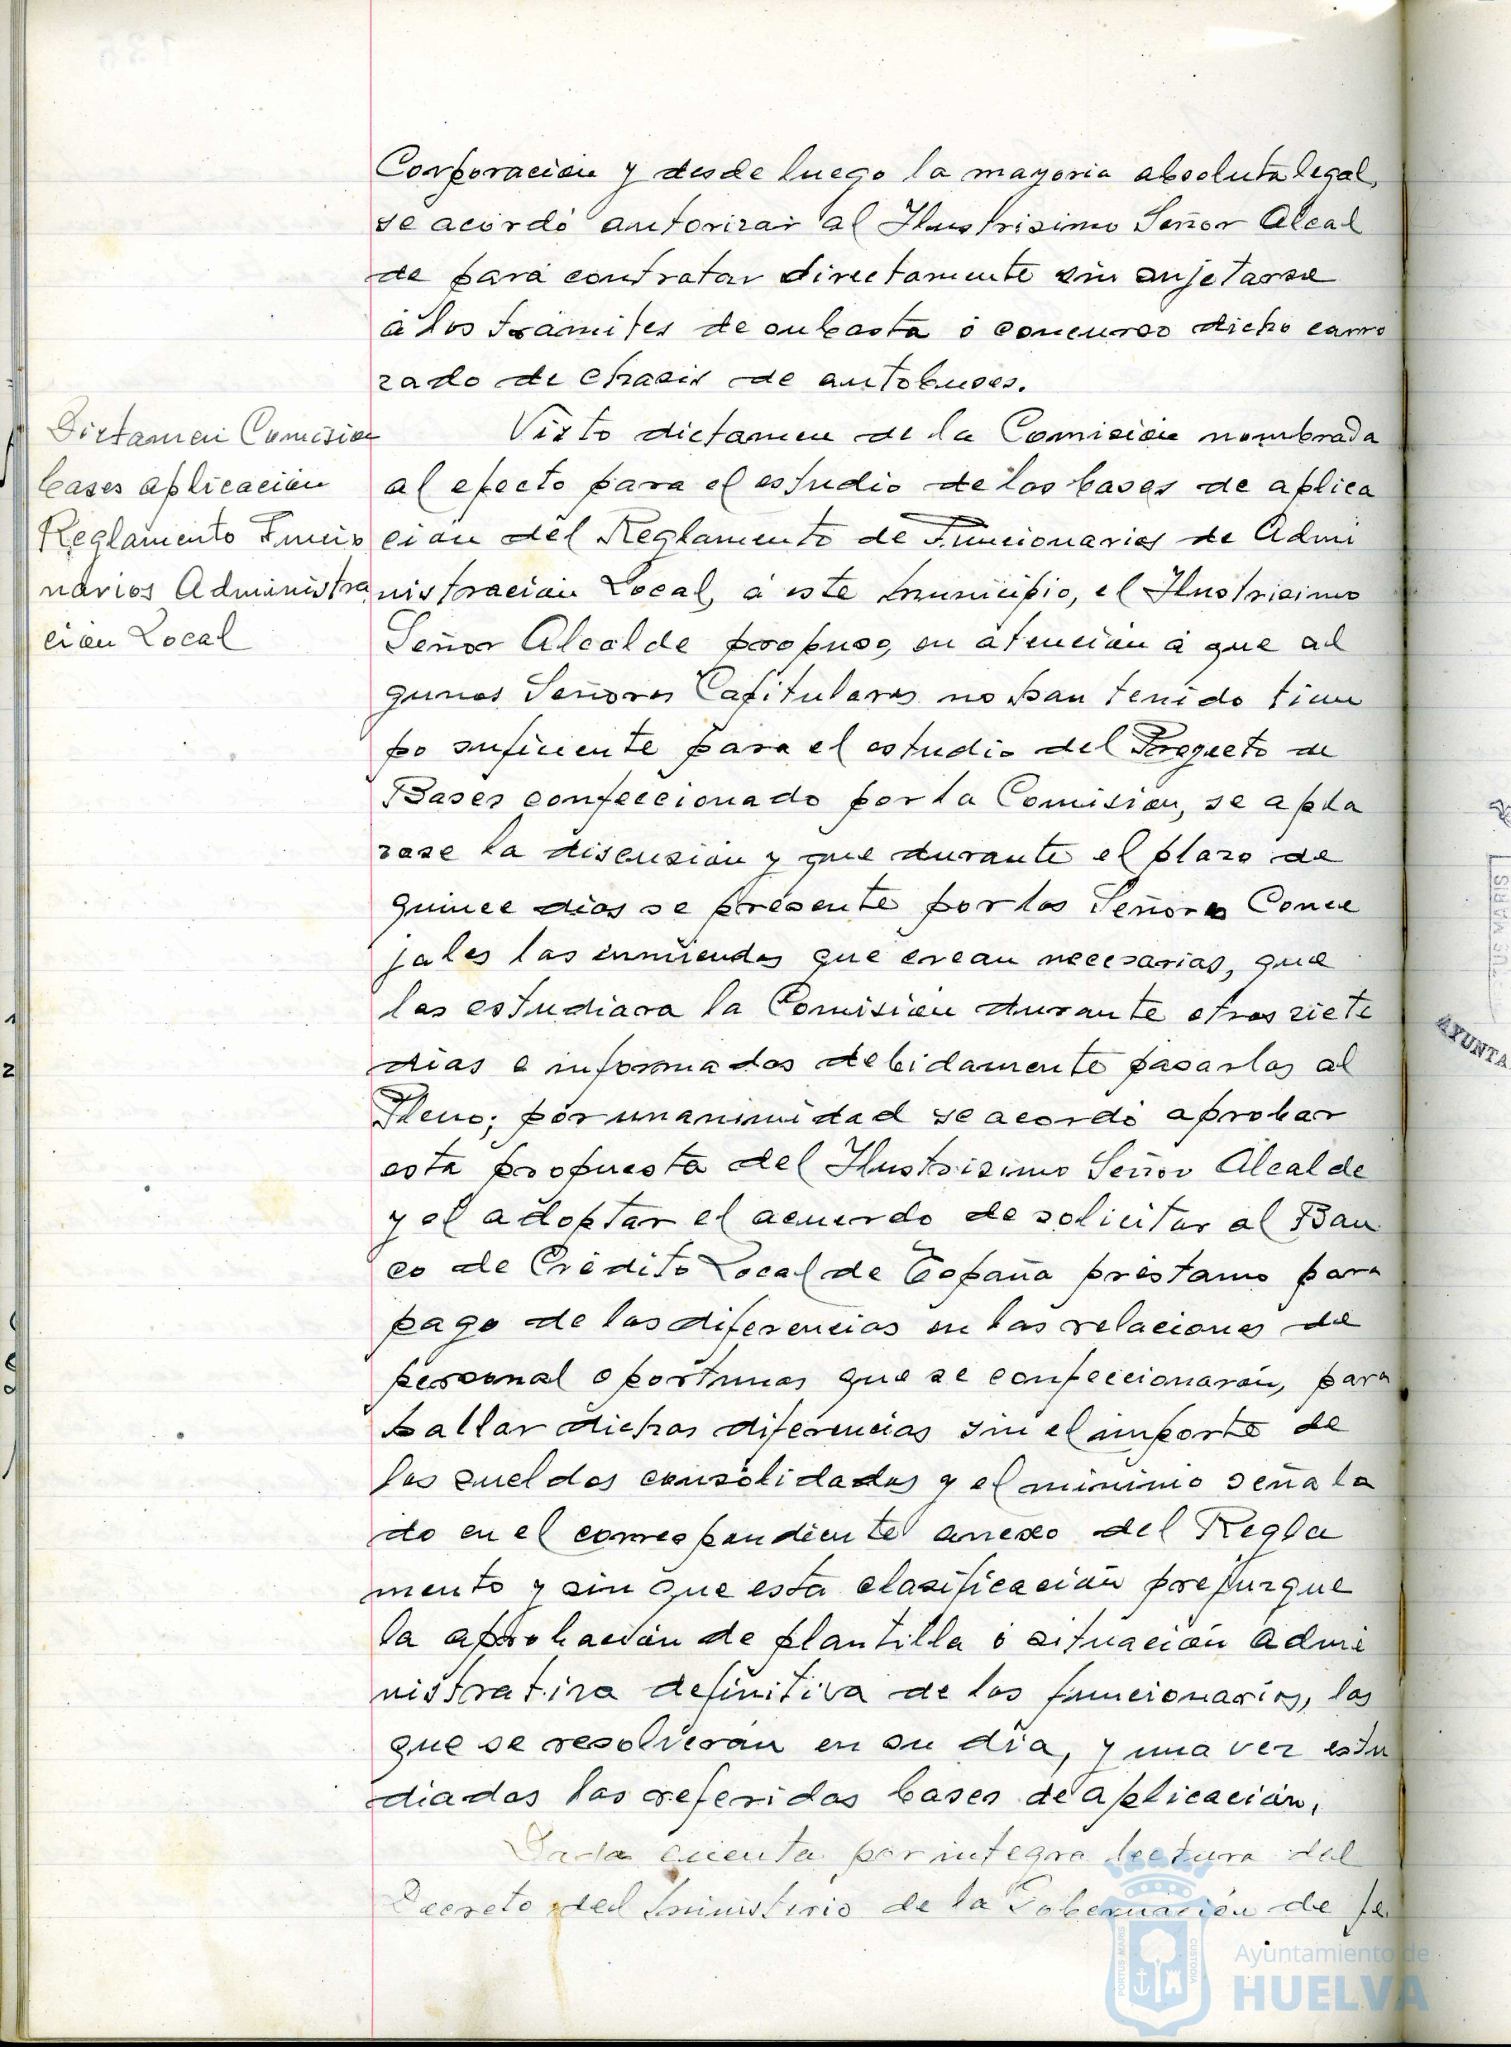 Corporación y desde luego la mayoria absoluta legal,
se acordó autorizar al Ilustrisimo Señor Alcal
de para contratar directamente sin sujetarse
á los trámites de subasta ó concurso dicho carro
zado de chasis de autobuses.
Dictamen Comision
bases aplicación
Reglamento Funcio
narios Administra
ción Local
Visto dictamen de la Comisión nombrada
al efecto para el estudio de las bases de aplica
ción del Reglamento de Funcionarios de Admi
nistración Local, á este municipio, el Ilustrisimo
Señor Alcalde propuso, en atención á que al
gunos Señores Capitulares no han tenido tiem
po suficiente para el estudio del Proyecto de
Bases confeccionado por la Comisión, se apla
zase la discusión y que durante el plazo de
quince dias se presente por los Señores Conce
jales las enmiendas que crean necesarias, que
las estudiara la Comisión durante otros siete
dias e informadas debidamente pasarlas al
Pleno; por unanimidad se acordó aprobar
esta propuesta del Ilustrisimo Señor Alcalde
y el adoptar el acuerdo de solicitar al Ban
co de Crédito Local de España préstamo para
pago de las diferencias en las relaciones de
personal oportunas que se confeccionarán, para
hallar dichas diferencias sin el importe de
los sueldos consolidados y el minimo señala
do en el correspondiente anexo del Regla
mento y sin que esta clasificación prejuzgue
la aprobación de plantilla ó situación admi
nistrativa definitiva de los funcionarios, las
que se resolverán en su dia, y una vez estu
diadas las referidas bases de aplicación,
Dada cuenta por integra lectura del
Decreto del ministerio de la Gobernación de fe
AYUNTA
PORTUS MARIS
CUSTODIA
Ayuntamiento de
HUELVA